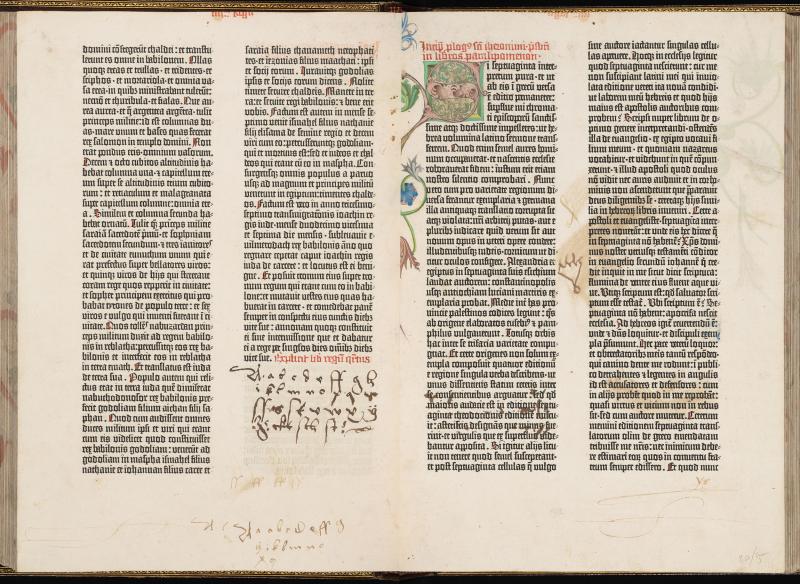 domini cōfregerūt chaldei: et transtu
lerunt es omne in babilonem. Ollas
quoq; ereas et trullas et tridentes et
sciphos et mortariola et omnia va
sa erea in quibus ministrabant tulerūt:
necnō et thuribula et fialas. Que au
rea aurea: et que argentea argētea tulit
princeps militie: id est columnas du
as mare unum et bases quas fecerat
rex salomon in templo domini. Non
erat pondus eris omnium vasorum.
Decem et octo cubitos altitudinis ha
bebat columna una: et capitellum ere
um super se altitudinis trium cubito
rum: et retiaculum et malagranata
super capitellum columne: omnia ere
a. Similem et columna secunda ha
bebat ornatū. Tulit quoq; princeps militie
saraiam sacerdotē primū et sophoniam
sacerdotem secundum: et tres ianitores
et de civitate eunuchum unum qui
erat prefectus super bellatores viros:
et quinq; viros de hijs qui steterant
coram rege quos repperit in civitate:
et sopher principem exercitus qui pro
babat tyrones de populo terre: et se
viros e vulgo qui inventi fuerant ī ci
vitate. Quos tollēs nabuzardan prin
ceps militum duxit ad regem babilo
nis in reblatha: percussitq; eos rex ba
bilonis et interfecit eos in reblatha
in terra emath. Et translatus est iuda
de terra sua. Populo autem qui reli
ctus erat in terra iuda quē dimiserat
nabuchodonosor rex babilonis pre
fecit godoliam filium aicham filij sa
phan. Quod cum audissent omnes
duces militum ipsi et viri qui erant
cum eis videlicet quod constituisset
rex babilonis godoliam: venerūt ad
godoliam in maspha ismahel filius
nathanie et iohannan filius caree et
saraia filius thanameth netophati
tes et iezonias filius maachati: ipsi
et socij eorum. Iuravitq; godolias
ipsis et socijs eorum dicens. Nolite
timere servire chaldeis. Manete in ter
ra: et servite regi babilonis: et bene erit
vobis. Factum est autem in mense se
ptimo venit ismahel filius nathanie
filij elisama de semine regio et decem
viri cum eo: percusseruntq; godoliam:
qui et mortuus est: sed et iudeos et chal
deos qui erant cū eo in maspha. Con
surgensq; omnis populus a parvo
usq; ad magnum et principes militū
venerunt in egiptum: timentes chalde
os. Factum est vero in anno tricesimo
septimo transmigrationis ioachin re
gis iude mense duodecimo vicesima
et septima die mensis: sublevavit e
uilmerodach rex babilonis āno quo
regnare ceperat caput ioachin regis
iuda de carcere: et locutus est ei beni
gne. Et posuit tronum eius super tro
num regum qui erant cum eo in babi
lone: et mutavit vestes eius quas ha
buerat in carcere: et comedebat panē
semper in conspectu eius cunctis diebus
vite sue: annonam quoq; constituit
ei sine intermissione que et dabatur
ei a rege per singulos dies omībus diebus
vite sue. Explicit lib regū qrtus
A a b c d e f f g h
i k l m n o p q r
Incipit plogus sci iheronimi psbiti
in libros paralipomenon
Si septuaginta inter
pretum pura et ut
ab eis ī grecū versa
ē editio permaneret:
supflue mi chroma
ti episcoporū sancti
sime atq; doctissime impelleres: ut he
brea volumina latino sermone trans
ferrem. Quod enim semel aures homi
num occupaverat et nascentis ecclesie
roboraverat fidem: iustum erat etiam
nostro silentio comprobari. Nunc
vero cum pro varietate regionum di
versa ferantur exemplaria et germana
illa antiquaq; translatio corrupta sit
atq; violata: nr̄i arbitrij putas aut e
pluribus iudicare quid verum sit aut
novum opus in veteri opere condere:
illudentibusq; iudeis cornicum ut di
citur oculos configere. Alexandria et
egiptus in septuaginta suis esichium
laudat auctorem: constantinopolis
usq; antiochiam luciani martiris ex
emplaria probat. Medie inter has pro
vincie palestinos codices legunt: quos
ab origene elaboratos eusebius et pam
philus vulgaverunt. Totusq; orbis
hac inter se trifaria varietate compu
gnat. Et certe origenes non solum ex
empla composuit quatuor editionū
e regione singula verba describens: ut
unus dissentiens statim ceteris inter
se consentientibus arguatur: sed quod
maioris audatie est in editione septu
aginta theodotionis editionē miscu
it: asteriscis designās que minus fue
rint et virgulis que ex superfluo vide
bantur apposita. Si igitur alijs licu
it non tenere quod semel susceperant
et post septuaginta cellulas que vulgo
sine auctore iactantur singulas cellu
las aperuere: hocq; in ecclesijs legitur
quod septuaginta nescierunt: cur me
non suscipiant latini mei qui inviola
ta editione veteri ita novā condidi
ut laborem meū hebreis et quod hijs
maius est apostolis auctoribus com
probem? Scripsi nuper librum de o
ptimo genere interpretandi: ostendēs
illa de evangelio: ex egipto vocavi fi
lium meum: et quoniam nazareus
vocabitur: et videbunt in quē cōpun
xerunt: et illud apostoli quod oculus
nō vidit nec auris audivit et in cor ho
minis non ascenderunt que preparavit
deus diligentibus se: ceteraq; hijs simi
lia in hebreorū libris inveniri. Certe a
postoli et evangeliste septuaginta inter
pretes noverant: et unde eis hec dicere que
in septuaginta nō habent? Xps domi
nus noster utriusq; testamēti cōditor
in evangelio secundū iohannē qui cre
dit inquit in me sicut dicit scriptura:
flumina de ventre eius fluent aque vi
ve. Utiq; scriptum est: qd salvator scri
ptum esse testat. Ubi scriptum ē? Se
ptuaginta nō habent: apocrifa nescit
ecclesia. Ad hebreos igit revertendū ē:
unde et dns loquit et discipuli exem
pla psumunt. Nec pace veterū loquor:
et obtrectatoribus meis tantū respōdeo
qui canino dente me rodunt: ī publi
co detrahentes et legentes in angulis:
idem et accusatores et defensores: cum
in alijs probēt quod in me reprobāt:
quasi virtus et vicium non in rebus
sit: sed cum auctore mutetur. Ceterum
memini editionem septuaginta trans
latorum olim de greco emendatam
tribuisse me nostris: nec inimicum debe
re estimari eorū quos in conventu fra
trum semper edissero. Et quod nunc
A a a b c d e f f g
h i k l m n o